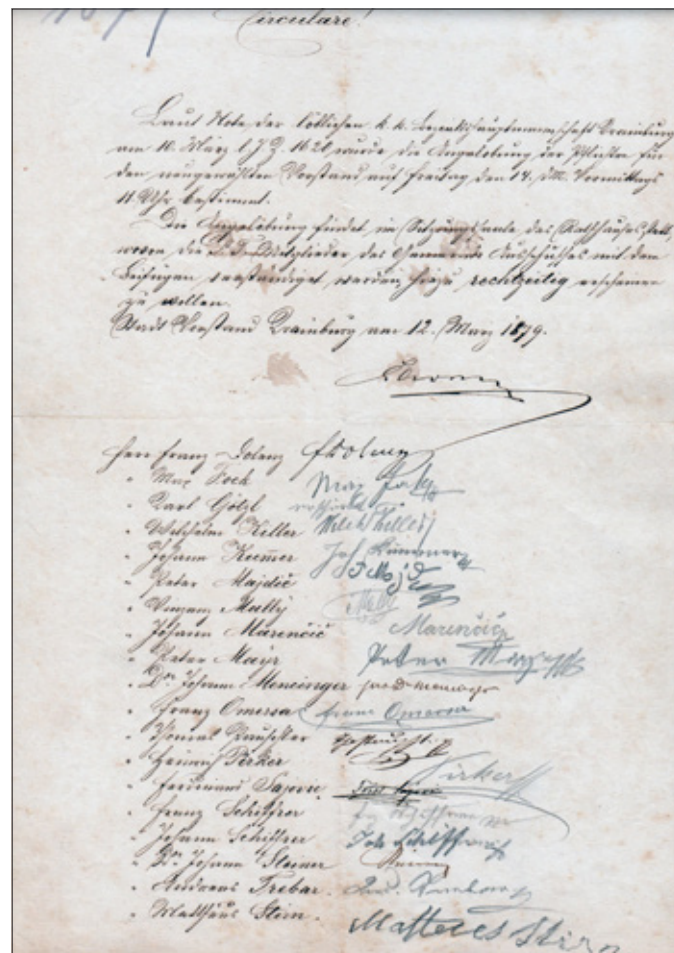 1879
Circulare!
Laut Note der löblichen k. k. Bezirkshauptmannschaft Krainburg
vom 10. März l. J. Z. 1620 wurde die Angelobung der Pflichten für
den neugewählten Vorstand auf Freitag den 14. d. M. Vormittags
11 Uhr bestimmt.
Die Angelobung findet im Sitzungssaale des Rathhauses statt,
wovon die P. T. Mitglieder des Gemeinde Ausschußes mit dem
Beifügen verständiget werden hiezu rechtzeitig erscheinen
zu wollen.
Stadt Vorstand Krainburg am 12. März 1879.
Herr Franz Dolenz
" Max Fock Max Fock
" Karl Gölzl
" Wilhelm Killer Wilh Killer
" Johann Kummer Joh Kummer
" Peter Majdič P Majdič
" Vinzenz Mally Mally
" Johann Marenčič Marenčič
" Peter Mayr Peter Mayr
" Dr. Johann Mencinger
" Franz Omersa Franz Omersa
" Thomas
" Heinrich Pirker Pirker
" Ferdinand Sajovic
" Franz Schiffrer
" Johann Schiffrer Joh Schiffrer
" Dr. Johann Steiner
" Andreas Trebar
" Matthäus Stirn Matteus Stirn